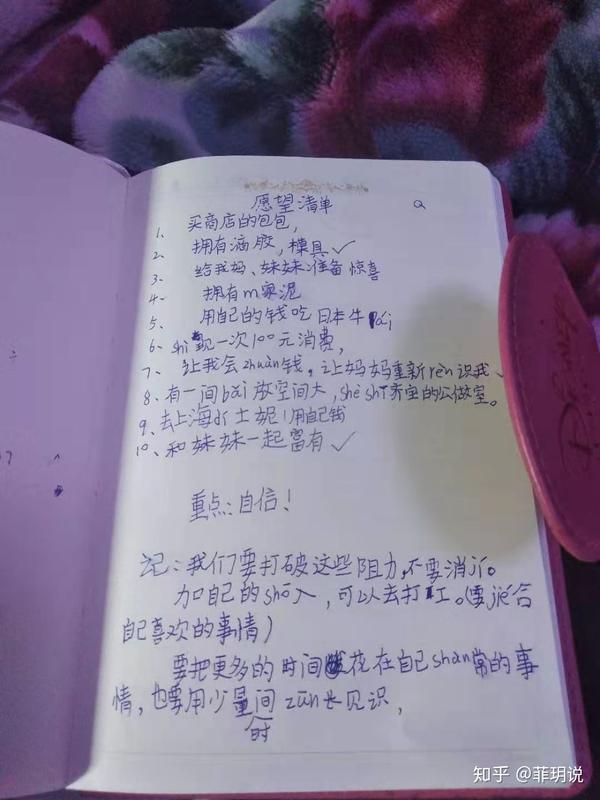 愿望清单
1、买商店的包包,
2、拥有滴胶,模具✓
3、给我妈、妹妹准备惊喜
4、拥有m泉泥
5、用自己的钱吃日本牛pái
6、shí现一次100元消费,
7、让我会zhuàn钱。让妈妈重新rèn识我、
8、有一间bǎi放空间大,shè shī齐全的公做室。
9、去上海dí士妮!用自己钱
10、和妹妹一起富有✓
重点:自信!
记:我们要打破这些阻力,不要消jí。
加自己的shō入,可以去打工。(要jié合
自己喜欢的事情)
要把更多的时间花在自己shàn常的事
情,也要用少量间zūn长见识,
时
知乎 @菲玥说